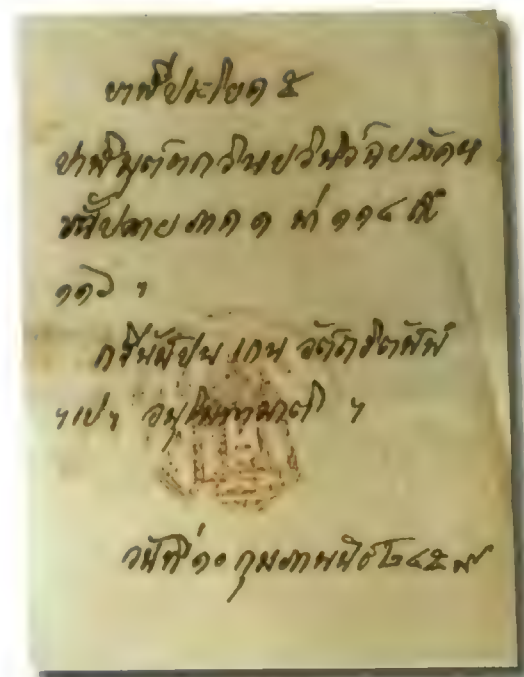 บาฬีประโยค ๕
บาฬีมุต์ตกวินยวินิจ์ฉยสังคห
ชั้นปลาย ภาค ๑ น่า ๑๑๔ ถึ
๑๑๖ ฯ
กรึนนีปน เกน อต์ถริตพ์พํ
ฯเปฯ อนุโมทามาติ ฯ
วันที่ ๑๐ กุมภาพนธ์ ๒๔๕๙